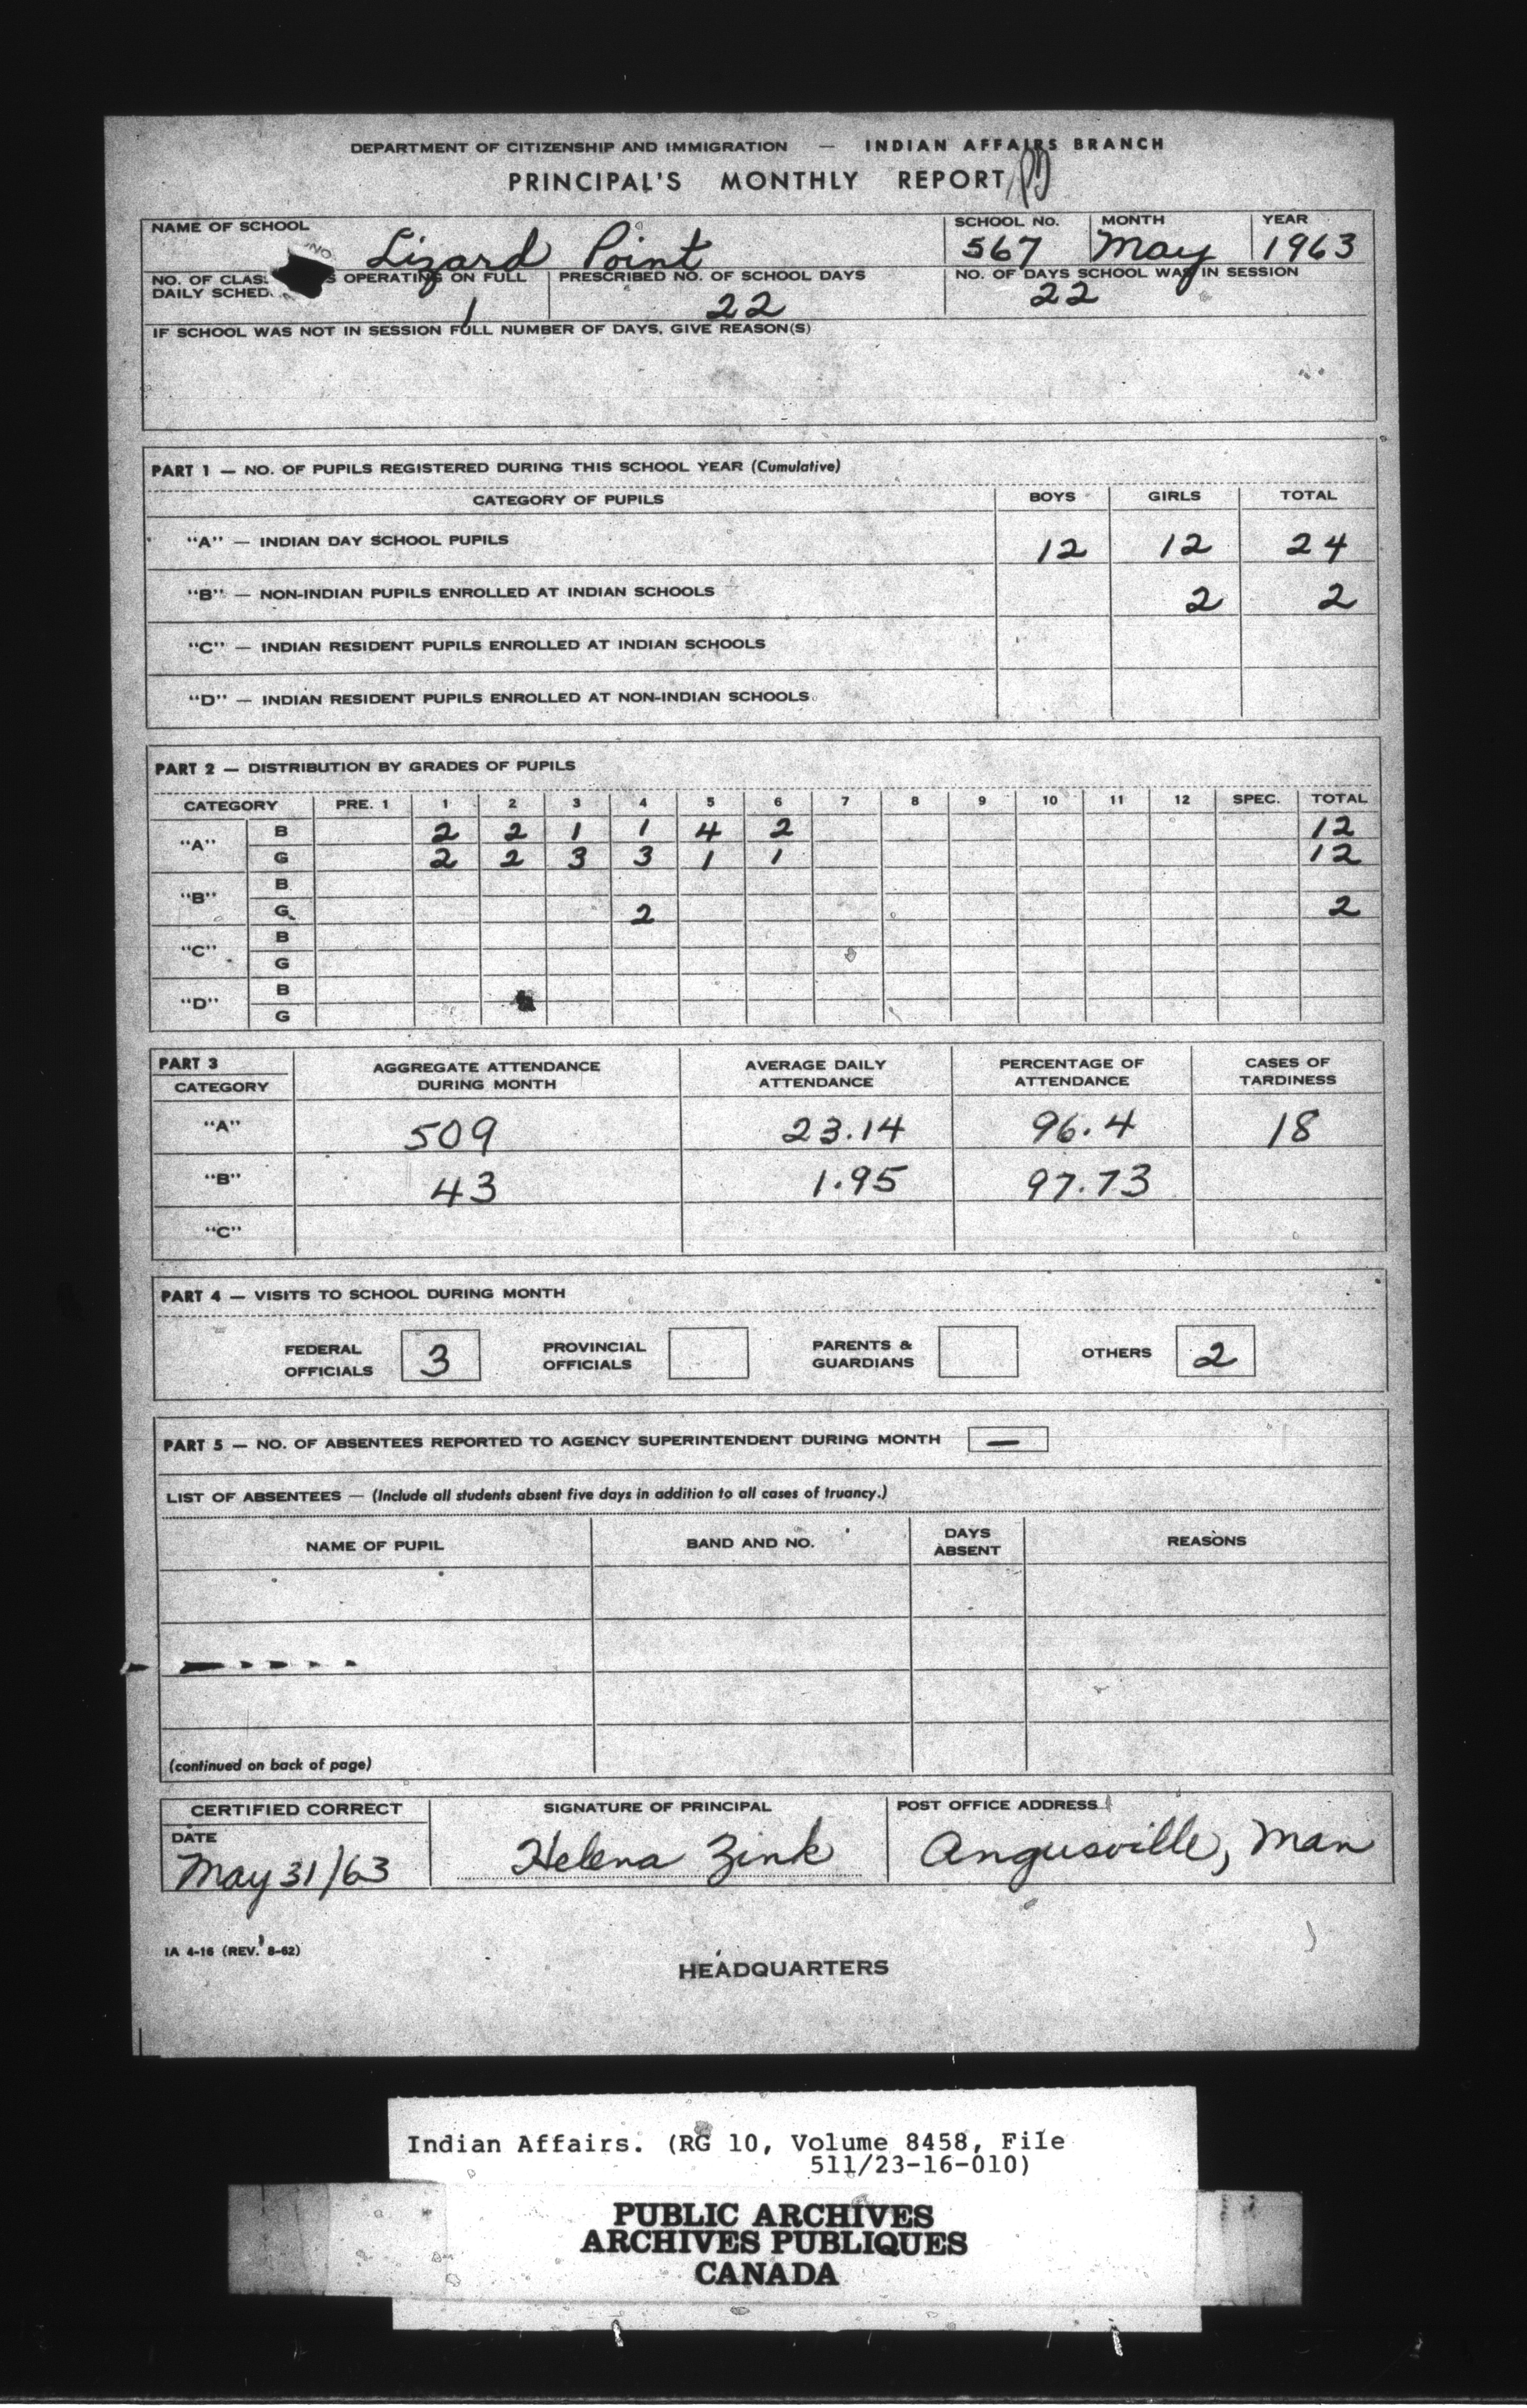 DEPARTMENT OF CITIZENSHIP AND IMMIGRATION — INDIAN AFFAIRS BRANCH
PRINCIPAL'S MONTHLY REPORT
NAME OF SCHOOL Lizard Point SCHOOL NO. 567 MONTH May YEAR 1963
NO. OF OPERATING ON FULL DAILY 1 PRESCRIBED NO. OF SCHOOL DAYS 22 NO. OF DAYS SCHOOL WAS IN SESSION 22
IF SCHOOL WAS NOT IN SESSION FULL NUMBER OF DAYS, GIVE REASON(S)
PART 1 — NO. OF PUPILS REGISTERED DURING THIS SCHOOL YEAR (Cumulative)
CATEGORY OF PUPILS BOYS GIRLS TOTAL
"A" — INDIAN DAY SCHOOL PUPILS 12 12 24
"B" — NON-INDIAN PUPILS ENROLLED AT INDIAN SCHOOLS 2 2
"C" — INDIAN RESIDENT PUPILS ENROLLED AT INDIAN SCHOOLS
"D" — INDIAN RESIDENT PUPILS ENROLLED AT NON-INDIAN SCHOOLS
PART 2 — DISTRIBUTION BY GRADES OF PUPILS
CATEGORY PRE. 1 1 2 3 4 5 6 7 8 9 10 11 12 SPEC. TOTAL
"A" B 2 2 1 1 4 2 12
G 2 2 3 3 1 1 12
"B" B
G 2 2
"C" B
G
"D" B
G
PART 3
CATEGORY AGGREGATE ATTENDANCE DURING MONTH AVERAGE DAILY ATTENDANCE PERCENTAGE OF ATTENDANCE CASES OF TARDINESS
"A" 509 23.14 96.4 18
"B" 43 1.95 97.73
"C"
PART 4 — VISITS TO SCHOOL DURING MONTH
FEDERAL OFFICIALS 3 PROVINCIAL OFFICIALS PARENTS & GUARDIANS OTHERS 2
PART 5 — NO. OF ABSENTEES REPORTED TO AGENCY SUPERINTENDENT DURING MONTH —
LIST OF ABSENTEES — (Include all students absent five days in addition to all cases of truancy.)
NAME OF PUPIL BAND AND NO. DAYS ABSENT REASONS
(continued on back of page)
CERTIFIED CORRECT SIGNATURE OF PRINCIPAL POST OFFICE ADDRESS
DATE
May 31/63 Helena Zink Angusville, Man
IA 4-16 (REV. 8-62)
HEADQUARTERS
Indian Affairs. (RG 10, Volume 8458, File
511/23-16-010)
PUBLIC ARCHIVES
ARCHIVES PUBLIQUES
CANADA